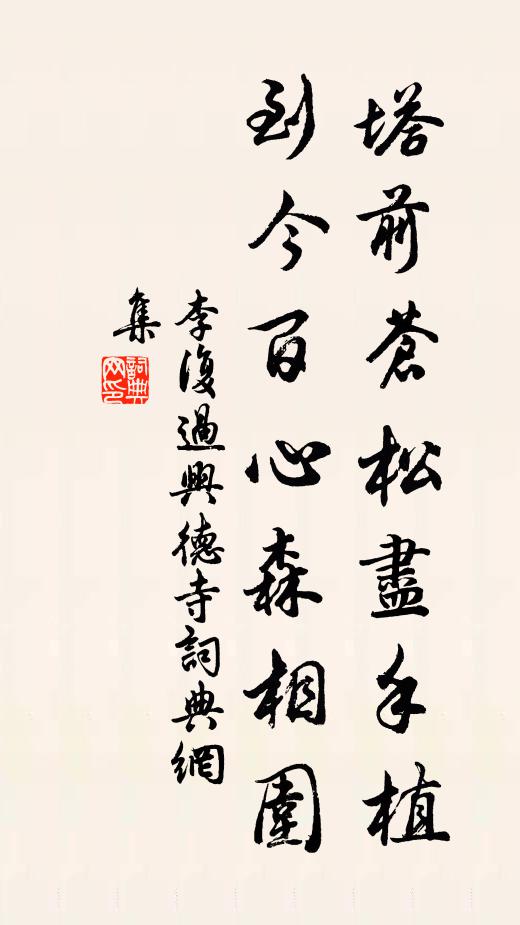 塔前蒼松盡手植
到今百心森相圍
李復過興德寺詞典網
集
詞典
网印